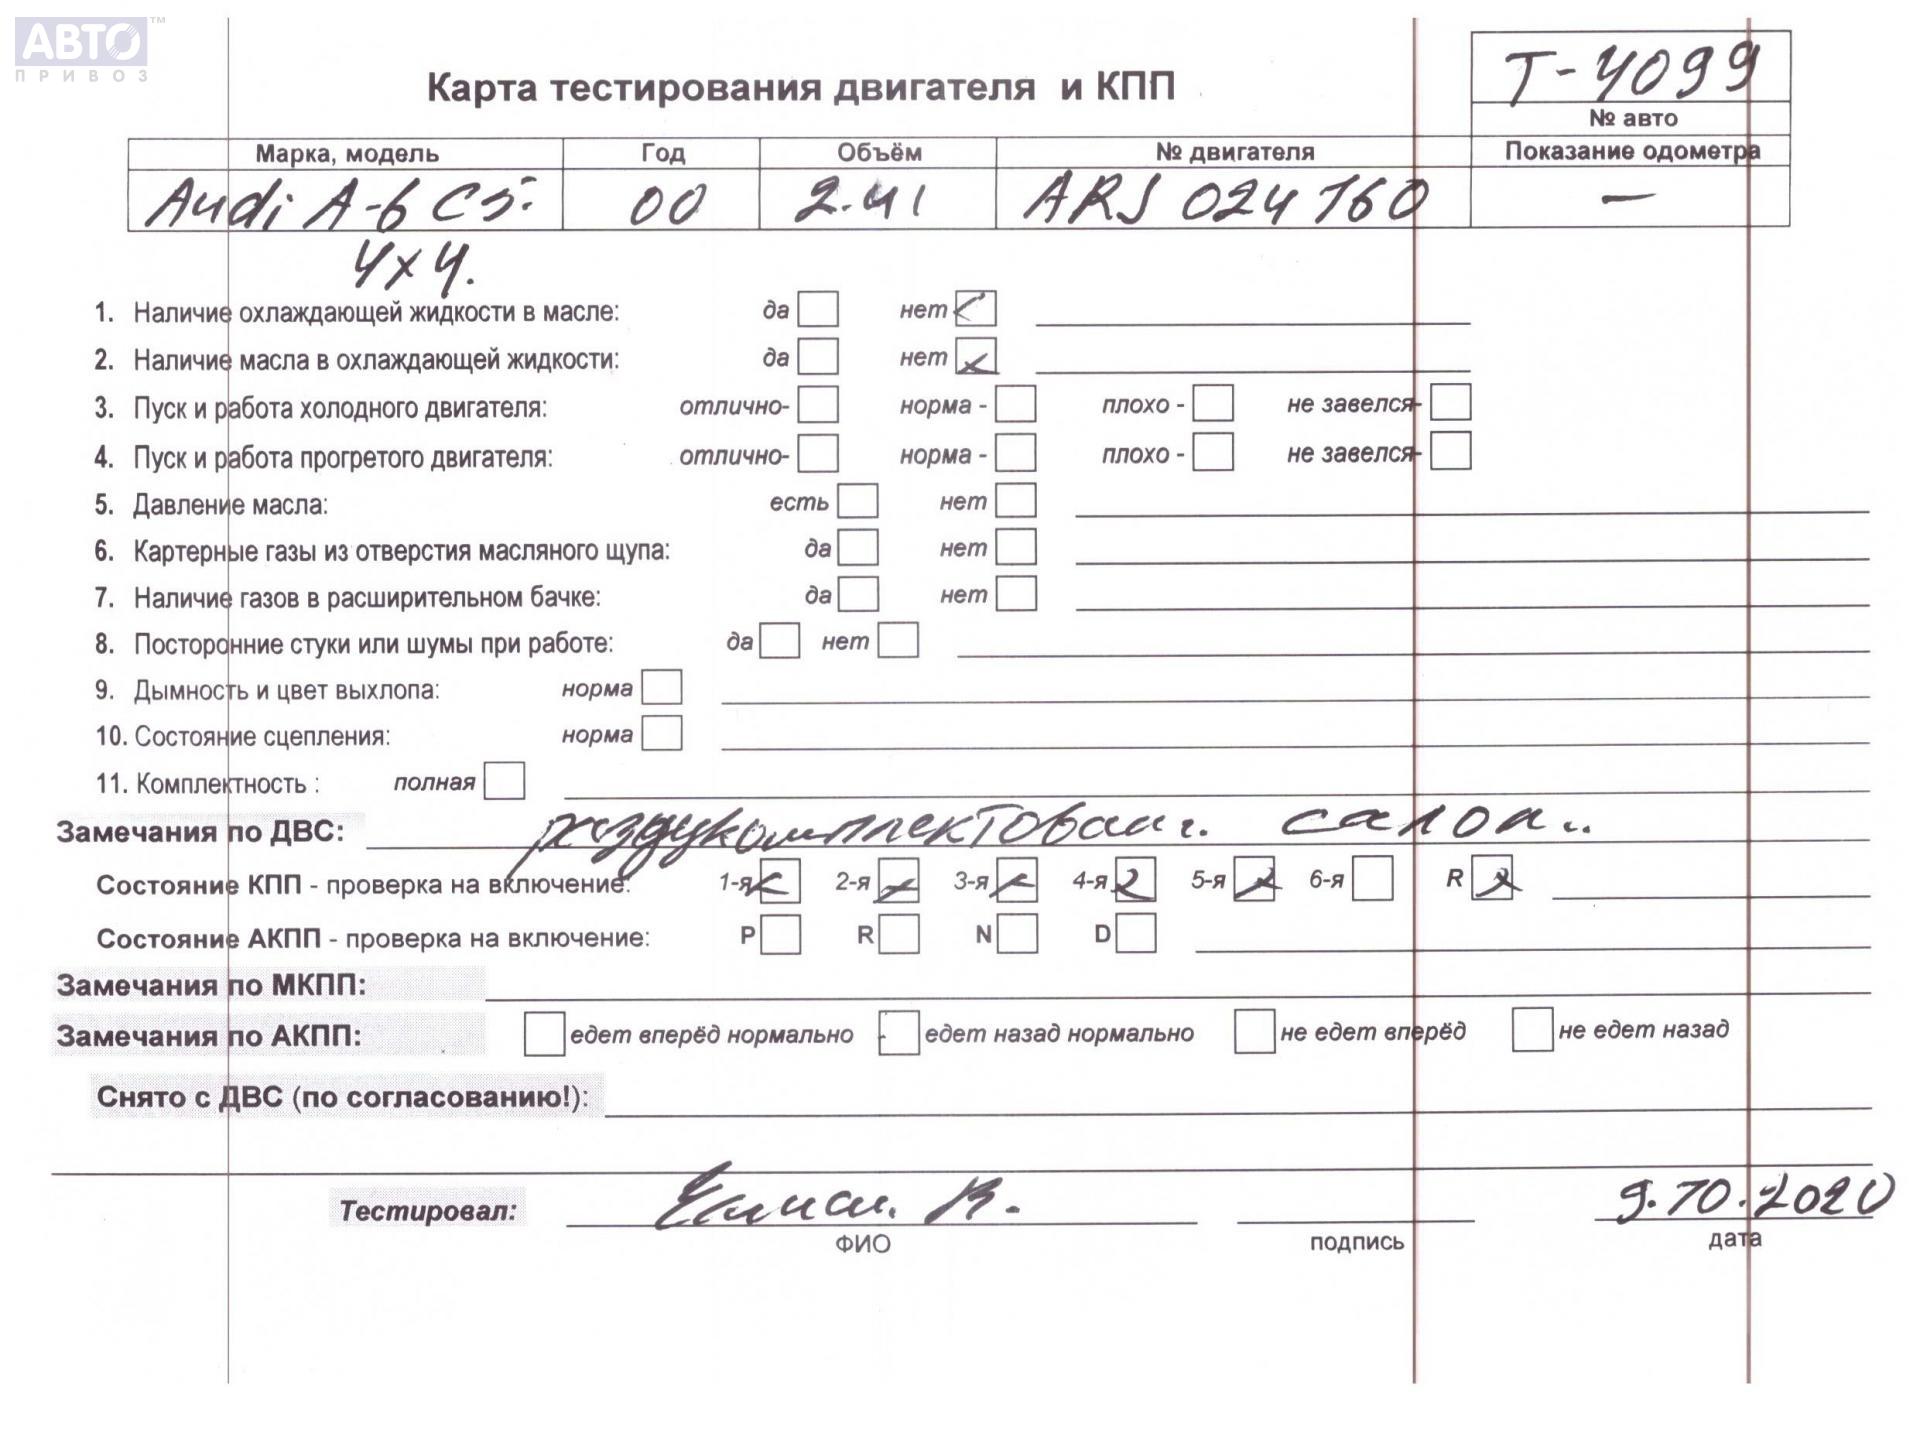 АВТО™
ПРИВОЗ
Т-4099
Карта тестирования двигателя и КПП
№ авто
Марка, модель Год Объём № двигателя Показание одометра
Audi A-6 C5. 00 2.4i ARJ 024160 —
4x4.
1. Наличие охлаждающей жидкости в масле: да нет
2. Наличие масла в охлаждающей жидкости: да нет
3. Пуск и работа холодного двигателя: отлично- норма - плохо - не завелся-
4. Пуск и работа прогретого двигателя: отлично- норма - плохо - не завелся-
5. Давление масла: есть нет
6. Картерные газы из отверстия масляного щупа: да нет
7. Наличие газов в расширительном бачке: да нет
8. Посторонние стуки или шумы при работе: да нет
9. Дымность и цвет выхлопа: норма
10. Состояние сцепления: норма
11. Комплектность : полная
Замечания по ДВС: салон..
Состояние КПП - проверка на включение: 1-я 2-я 3-я 4-я 5-я 6-я R
Состояние АКПП - проверка на включение: P R N D
Замечания по МКПП:
Замечания по АКПП: едет вперёд нормально едет назад нормально не едет вперёд не едет назад
Снято с ДВС (по согласованию!):
Тестировал: В. 9.10.2020
ФИО подпись дата